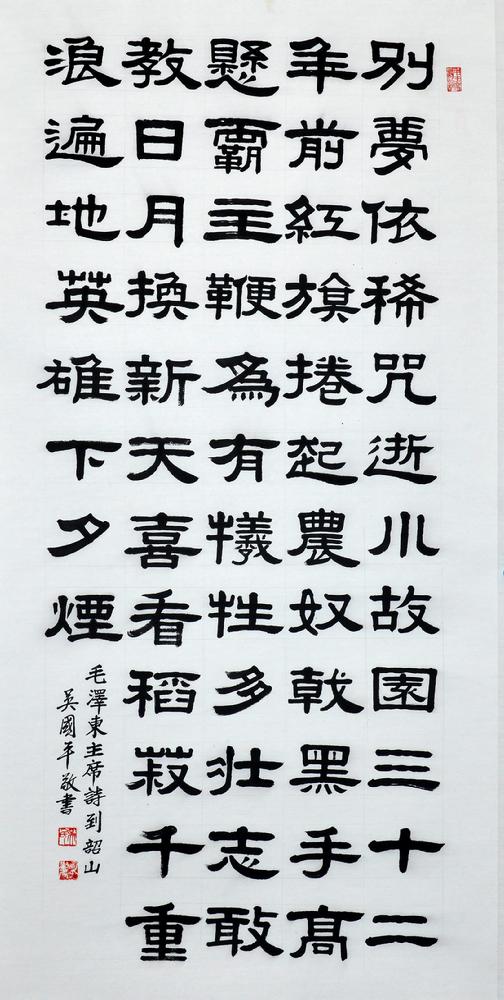 別夢依稀咒逝川故園三十二
年前紅旗捲起農奴戟黑手高
懸霸主鞭為有犧牲多壯志敢
教日月換新天喜看稻菽千重
浪遍地英雄下夕煙
毛澤東主席詩到韶山
吳國平敬書